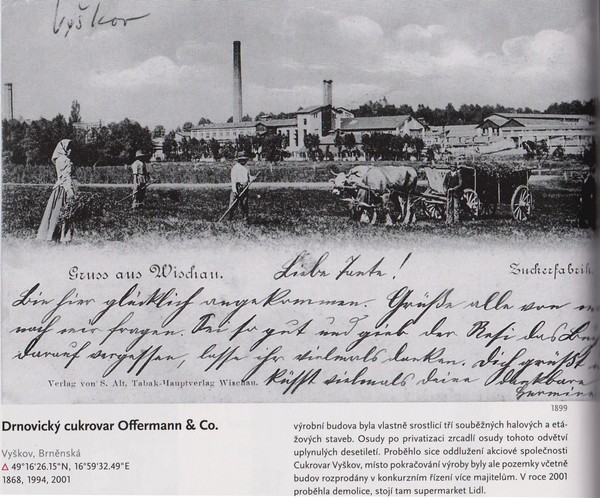 Vyškov
Gruss aus Wischau.
Liebe Tante!
Zuckerfabrik
Bin hier glücklich angekommen. Grüße alle von
nach mir fragen. Sei so gut und gieb der Resi das
darauf vergessen, lasse ihr vielmals danken. Dich grüßt
Verlag von S. Alt, Tabak-Hauptverlag Wischau.
Küsst vielmals deine dankbare
Hermine
1899
Drnovický cukrovar Offermann & Co.
Vyškov, Brněnská
△ 49°16'26.15"N, 16°59'32.49"E
1868, 1994, 2001
výrobní budova byla vlastně srostlicí tří souběžných halových a etá-
žových staveb. Osudy po privatizaci zrcadlí osudy tohoto odvětví
uplynulých desetiletí. Proběhlo sice oddlužení akciové společnosti
Cukrovar Vyškov, místo pokračování výroby byly ale pozemky včetně
budov rozprodány v konkurzním řízení více majitelům. V roce 2001
proběhla demolice, stojí tam supermarket Lidl.